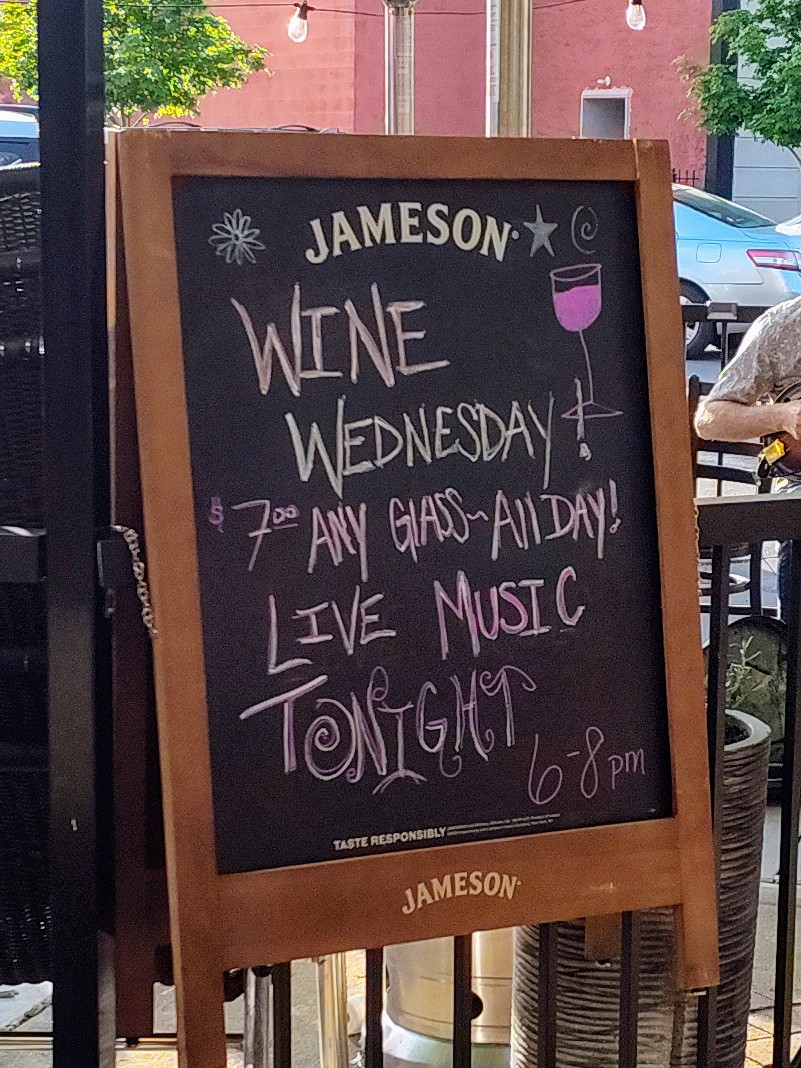 JAMESON
WINE
WEDNESDAY!
$7.00 ANY GLASS~All DAY!
LIVE MUSIC
TONIGHT
6-8pm
TASTE RESPONSIBLY
JAMESON